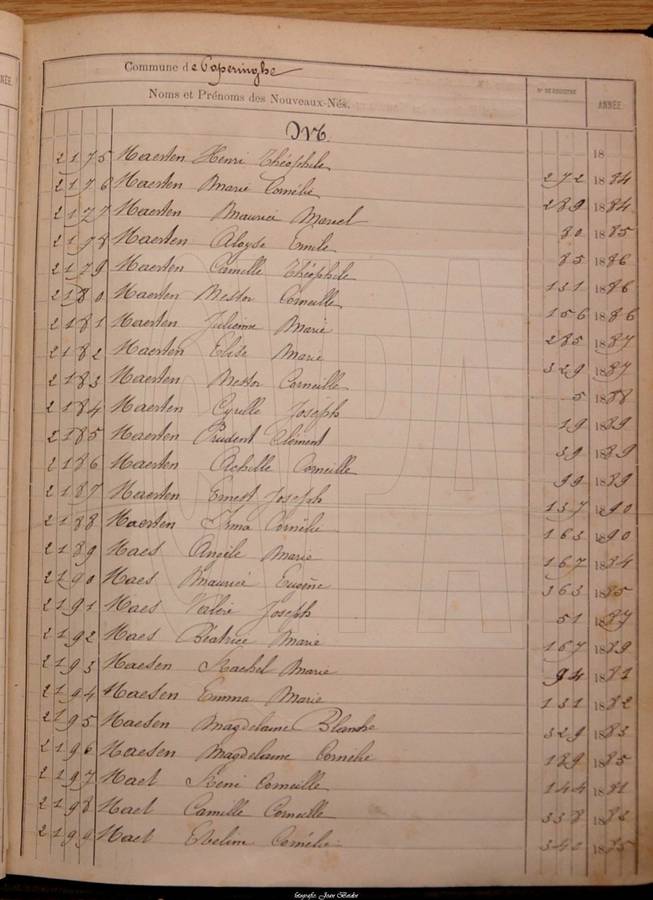 Commune de Poperinghe
Noms et Prénoms des Nouveaux-Nés.
N° DE REGISTRE
ANNÉE
M.
18
2175 Maerten Henri Théophile 272 1884
2176 Maerten Marie Cornélie 289 1884
2177 Maerten Maurice Marcel 80 1885
2178 Maerten Aloyse Emile 85 1886
2179 Maerten Camille Théophile 131 1886
2180 Maerten Nestor Corneille 156 1886
2181 Maerten Julienne Marie 285 1887
2182 Maerten Elise Marie 329 1887
2183 Maerten Nestor Corneille 5 1888
2184 Maerten Cyrille Joseph 19 1889
2185 Maerten Prudent Clément 39 1889
2186 Maerten Achille Corneille 99 1889
2187 Maerten Ernest Joseph 137 1890
2188 Maerten Irma Cornélie 163 1890
2189 Maes Angèle Marie 167 1884
2190 Maes Maurice Eugène 363 1885
2191 Maes Valère Joseph 51 1887
2192 Maes Béatrice Marie 167 1889
2193 Maesen Rachel Marie 94 1881
2194 Maesen Emma Marie 131 1882
2195 Maesen Magdelaine Blanche 329 1883
2196 Maesen Magdelaine Cornélie 189 1885
2197 Mael Réné Corneille 144 1881
2198 Mael Camille Corneille 338 1882
2199 Mael Eveline Cornélie 342 1885